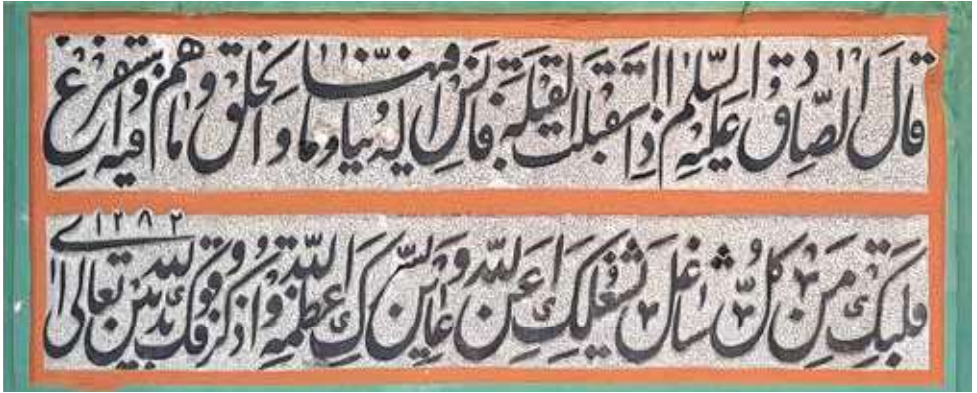 قال الصادق عليه السلام اذا استقبلت القبلة فانس الدنيا وما فيها والخلق وما هم فيه واستفرغ
قلبك من كل شاغل يشغلك عن الله وعاين بسرك عظمة الله واذكر وقوفك بين يدي الله تعالى ١٢٨٢